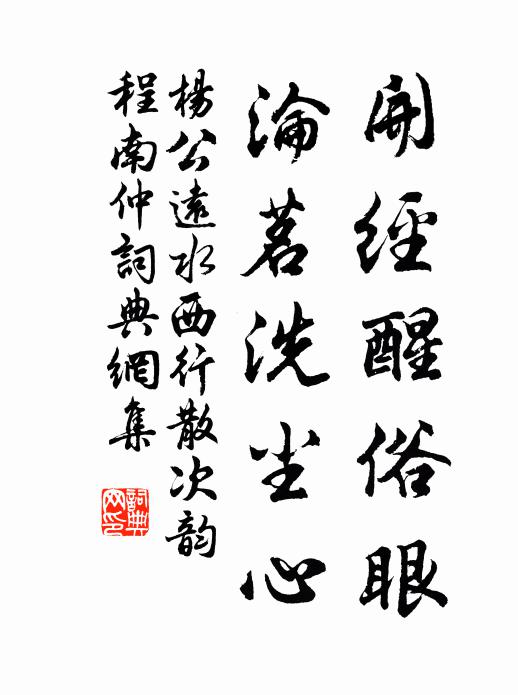 開經醒俗眼
瀹茗洗尘心
楊公遠水西行散次韵
程南仲詞典網集
詞典
网印